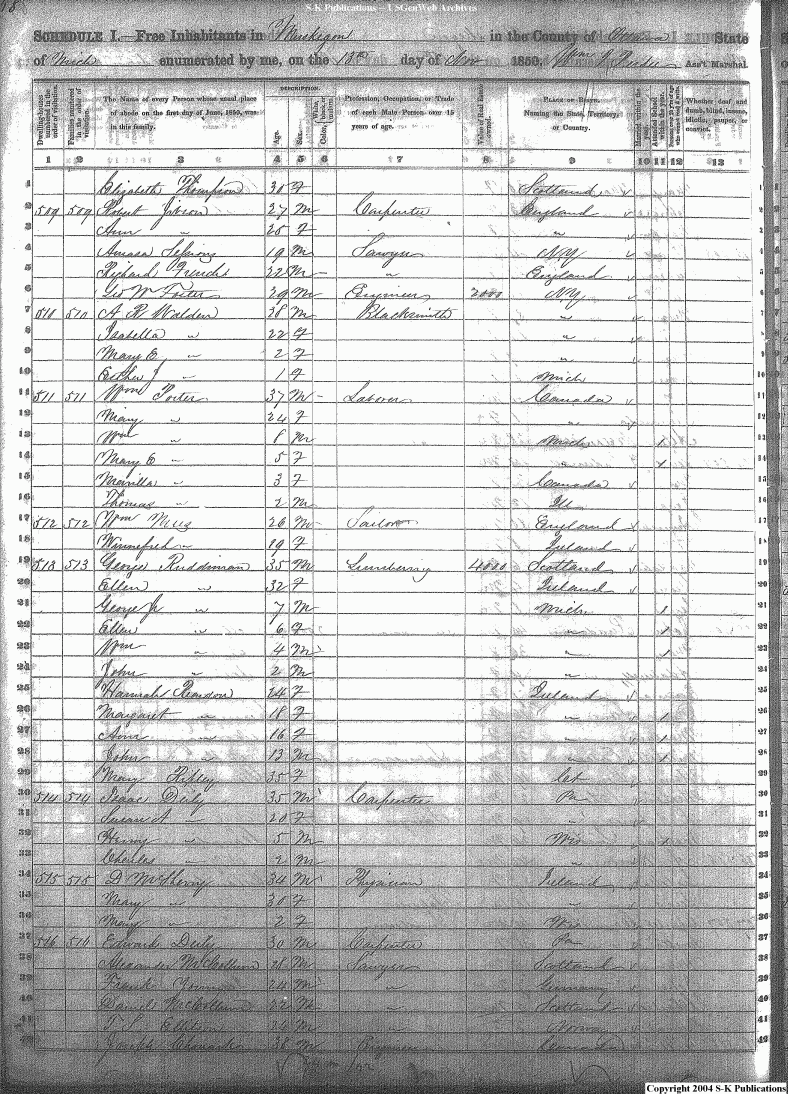 S-K Publications – USGenWeb Archives
SCHEDULE I.—Free Inhabitants in Muskegon in the County of State
of Mich enumerated by me, on the 13th day of Nov 1850. Wm Ass't Marshal.
Dwelling-houses numbered in the order of visitation.
Families numbered in the order of visitation.
The Name of every Person whose usual place of abode on the first day of June, 1850, was in this family.
DESCRIPTION.
Age.
Sex.
Color, White, black, or mulatto.
Profession, Occupation, or Trade of each Male Person over 15 years of age.
Value of Real Estate owned.
PLACE OF BIRTH. Naming the State, Territory, or Country.
Married within the year.
Attended School within the year.
Persons over 20 y'rs of age who cannot read & write.
Whether deaf and dumb, blind, insane, idiotic, pauper, or convict.
1 2 3 4 5 6 7 8 9 10 11 12 13
1 Elizabeth Thompson 30 F Scotland 1
2 509 509 Robert Gibson 27 M Carpenter England 2
3 Ann " 25 F " 3
4 Amasa Sessions 19 M Sawyer NY 4
5 Richard French 22 M " England 5
6 Geo W Foster 29 M Engineer 2000 NY 6
7 510 510 A R Walden 28 M Blacksmith " 7
8 Isabella " 22 F " 8
9 Mary E " 2 F " 9
10 Esther J " 1 F Mich 10
11 511 511 Wm Porter 37 M Laborer Canada 11
12 Mary " 24 F " 12
13 Wm " 8 M Mich 1 13
14 Mary E " 5 F " 1 14
15 Marilla " 3 F Canada 15
16 Thomas " 2 M Ill 16
17 512 512 Wm 26 M Sailor England 17
18 Winnefred " 19 F Ireland 18
19 513 513 George Ruddiman 35 M Lumbering 4000 Scotland 19
20 Ellen " 32 F Ireland 20
21 George Jr " 7 M Mich 1 21
22 Ellen " 6 F " 1 22
23 Wm " 4 M " 1 23
24 John " 2 M " 24
25 Hannah 24 F Ireland 25
26 Margaret " 18 F " 1 26
27 Ann " 16 F " 1 27
28 John " 13 M " 1 28
29 Mary 35 F Ct 29
30 514 514 Isaac Deily 35 M Carpenter Pa 30
31 Susan A " 20 F " 31
32 Henry " 5 M Wis 1 32
33 Charles " 2 M " 33
34 515 515 D McSherry 34 M Physician Ireland 34
35 Mary " 30 F " 35
36 Mary " 2 F Wis 36
37 516 516 Edward Deily 30 M Carpenter Pa 37
38 Alexander McCollum 28 M Sawyer Scotland 38
39 Frank 24 M " Germany 39
40 Daniel McCollum 22 M " Scotland 40
41 24 M " 41
42 Joseph 38 M 42
Copyright 2004 S-K Publications